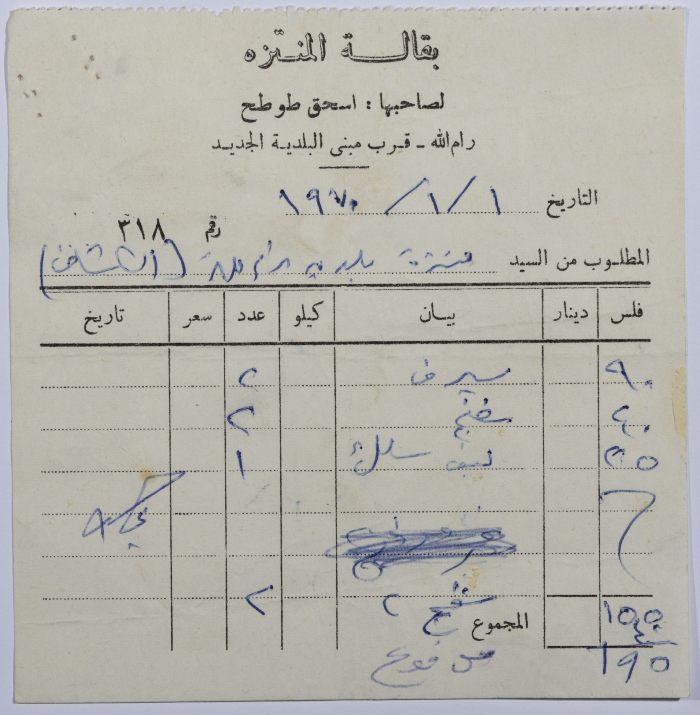 بقالة المنتزه
لصاحبها : اسحق طوطح
رام الله - قرب مبنى البلدية الجديد
التاريخ ١ / ١ / ١٩٧٠
رقم ٣١٨
المطلوب من السيد منتزة بلدية رام الله
فلس دينار بيان كيلو عدد سعر تاريخ
٩٠ سيرف ٢
٤٠ سفنج ٢
٢٥ ليف سلك ١
١٥٥
المجموع سفنج ٢ ٢
١٩٥